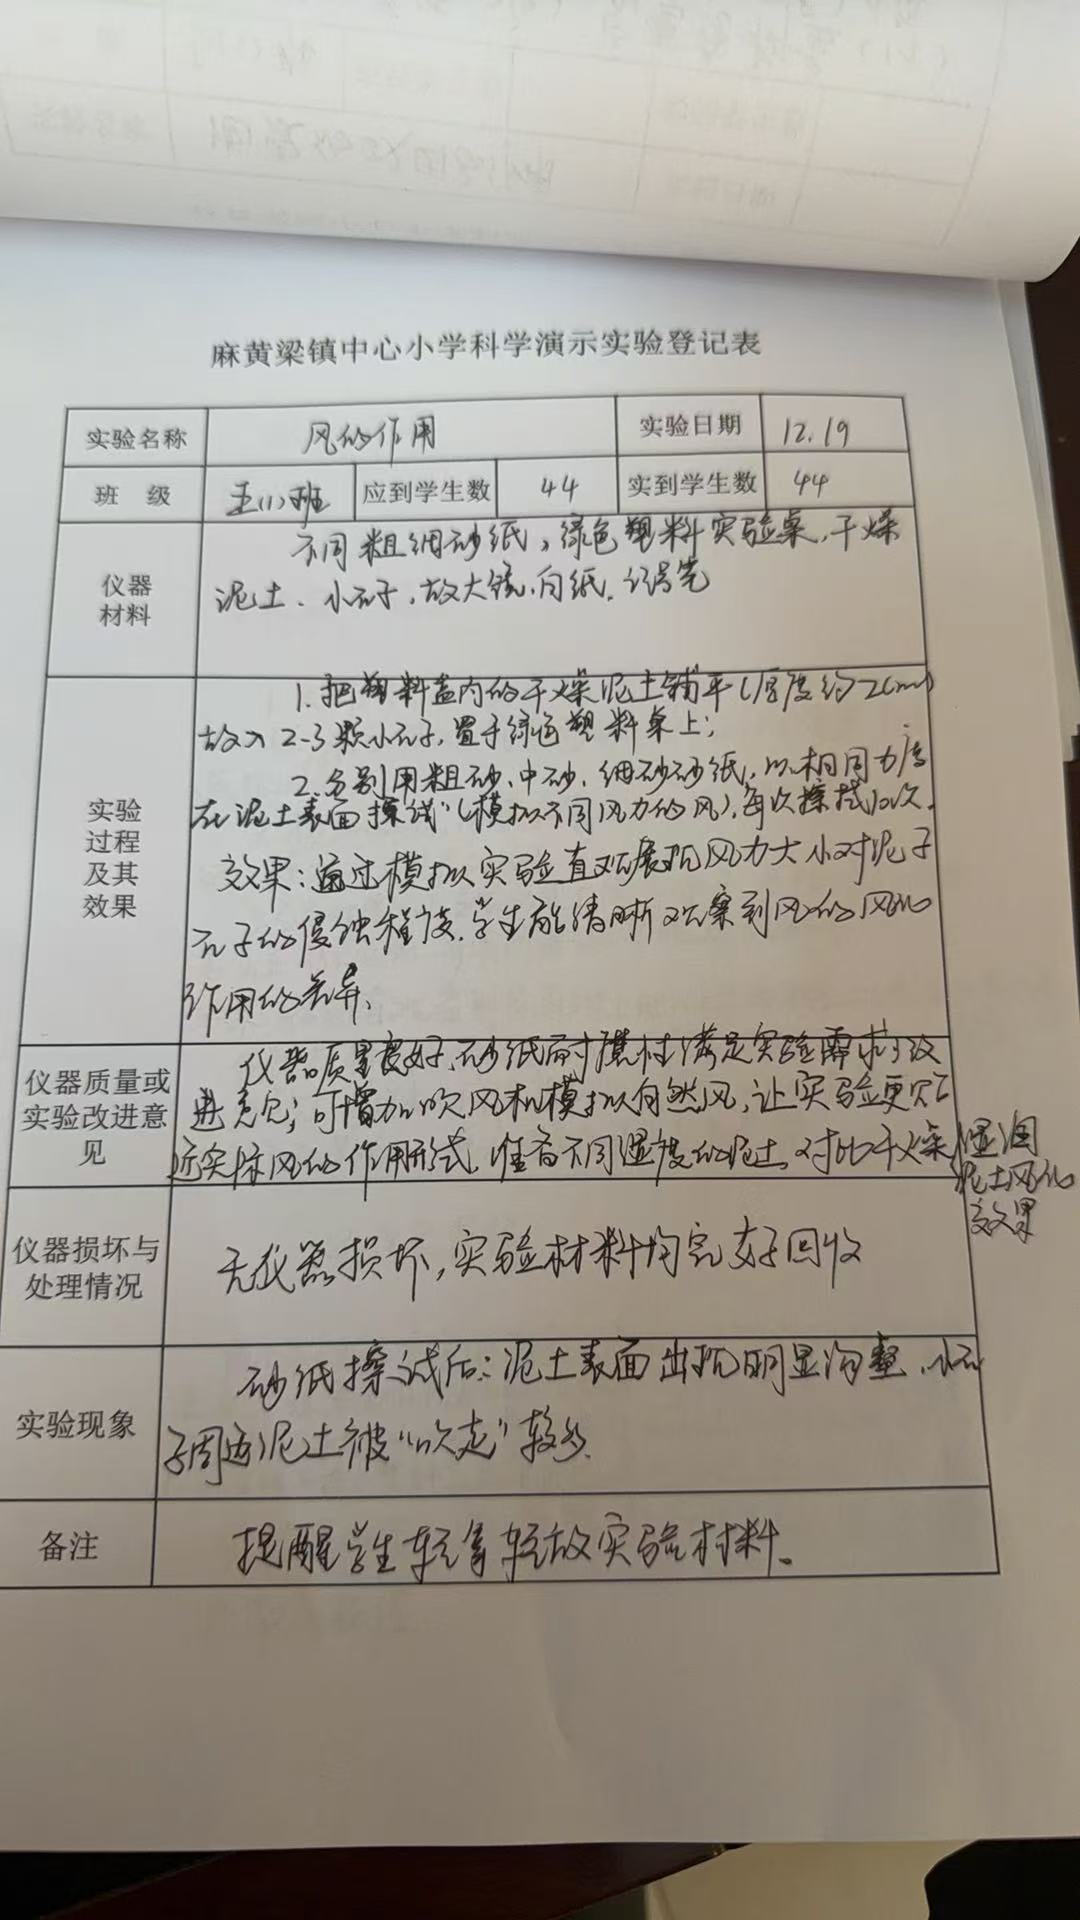 麻黄梁镇中心小学科学演示实验登记表
实验名称 风的作用 实验日期 12.19
班 级 五(1)班 应到学生数 44 实到学生数 44
仪器材料 不同粗细砂纸,绿色塑料实验桌,干燥
泥土、小石子,放大镜,白纸,记号笔
实验过程及其效果 1.把塑料盒内的干燥泥土铺平(厚度约2cm)
放入2-3颗小石子,置于绿色塑料桌上;
2.分别用粗砂、中砂、细砂砂纸,以相同力度
在泥土表面擦线"(模拟不同风力的风),每次擦拭10次.
效果:通过模拟实验直观展现风力大小对泥子
石子的侵蚀程度,学生能清晰观察到风的风化
作用的差异、
仪器质量或实验改进意见 仪器质量良好,砂纸耐磨性满足实验需求;改
进意见;可增加吹风机模拟自然风,让实验更贴
近实际风的作用形式,准备不同湿度的泥土,对比干燥/湿润
泥土风化
效果
仪器损坏与处理情况 无仪器损坏,实验材料均完好回收
实验现象 砂纸擦试后:泥土表面出现明显沟壑,小石
子周边泥土被"吹走"较多.
备注 提醒学生轻拿轻放实验材料。